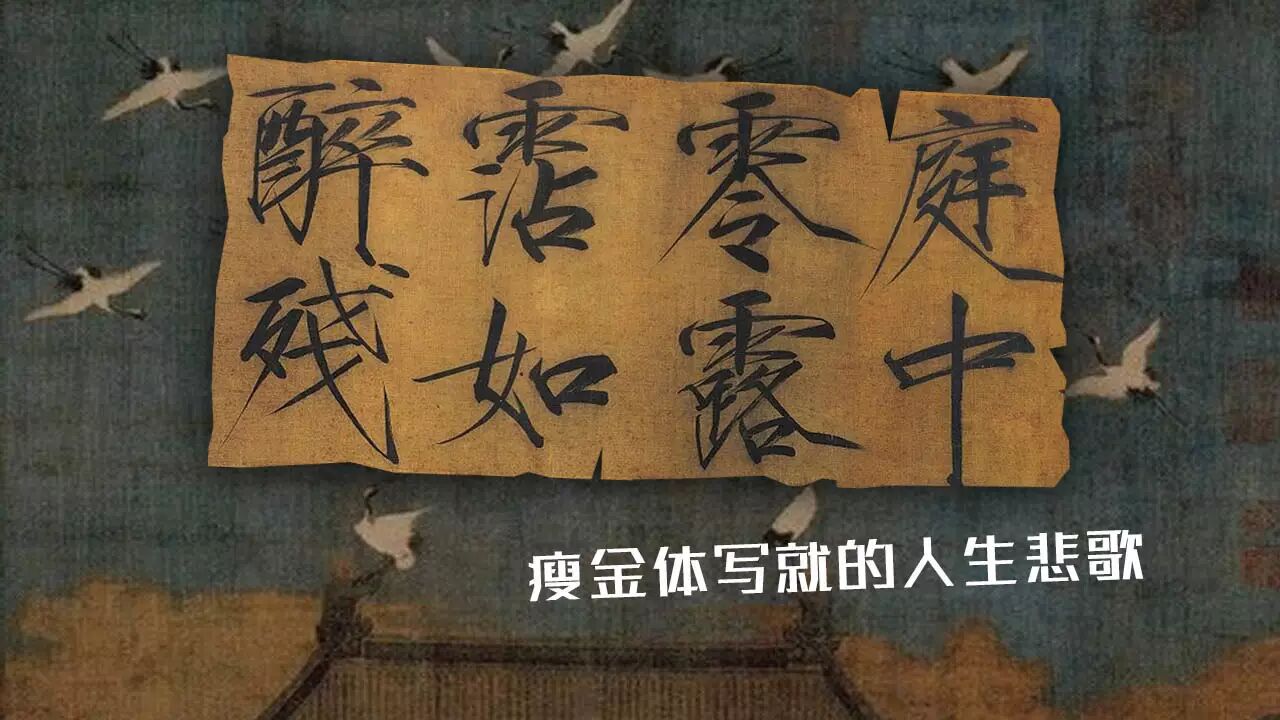 庭中
零露
霑如
醉殘
瘦金体写就的人生悲歌